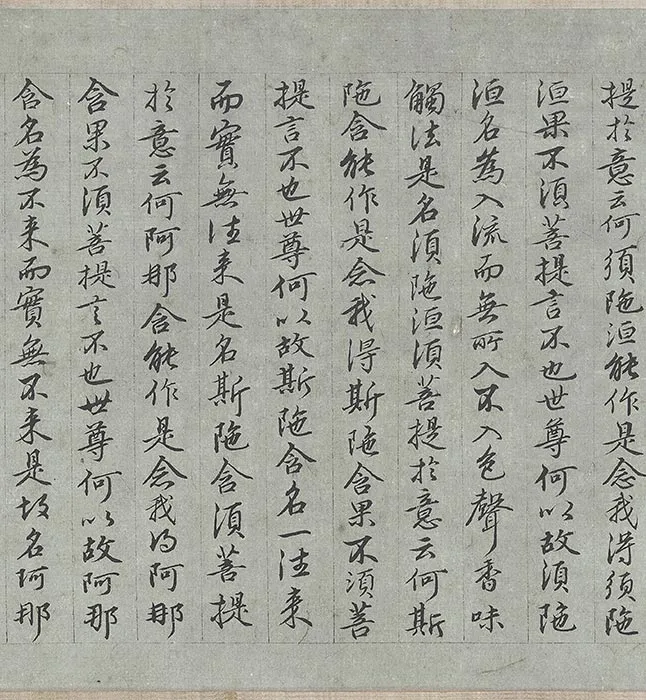 提於意云何須陁洹能作是念我得須陁
洹果不須菩提言不也世尊何以故須陁
洹名為入流而無所入不入色聲香味
觸法是名須陁洹須菩提於意云何斯
陁含能作是念我得斯陁含果不須菩
提言不也世尊何以故斯陁含名一往来
而實無往来是名斯陁含須菩提
於意云何阿那含能作是念我得阿那
含果不須菩提言不也世尊何以故阿那
含名為不来而實無不来是故名阿那